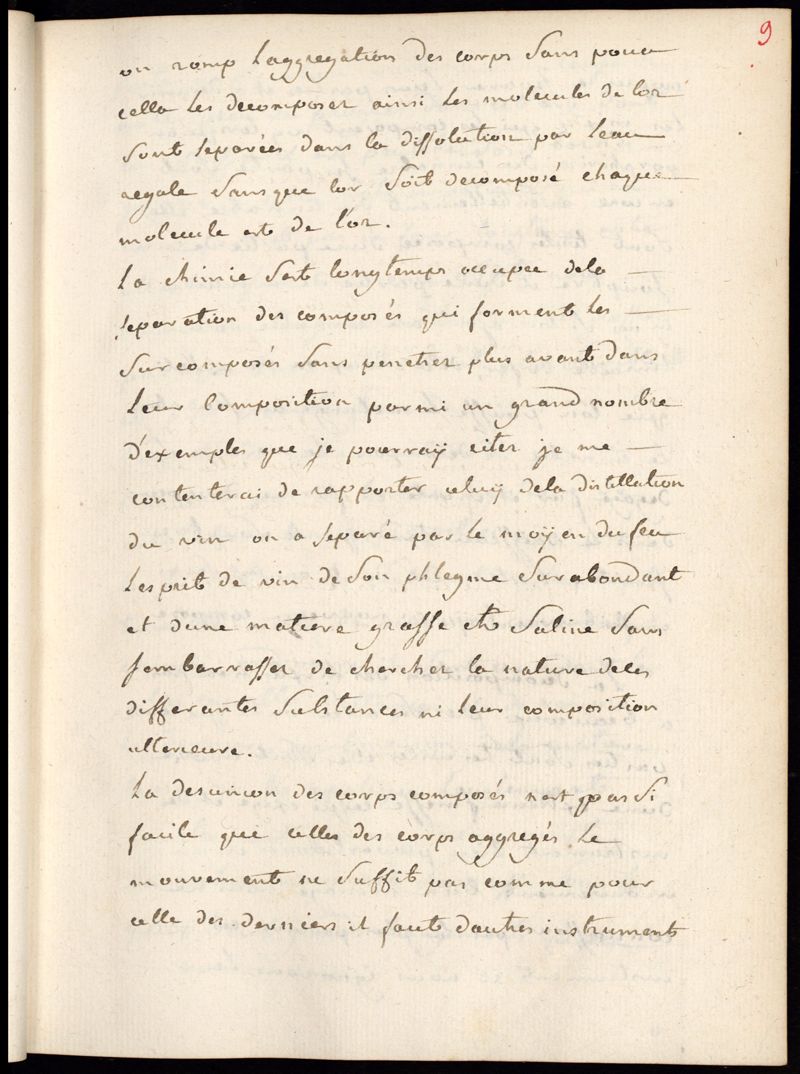 9
on romp laggregation des corps sans pour
cella les decomposer ainsi les molecules de lor
sont separées dans la dissolution par leau
regale sans que lor soit decomposé chaque
molecule est de l'or.
la chimie sest longtemps occupée dela
separation des composés qui forment les
surcomposés sans penetrer plus avant dans
leur composition parmi un grand nombre
d'exemples que je pourraÿ citer je me
contenterai de rapporter celuy dela distillation
du vin on a separé par le moÿen du feu
lesprit de vin de son phlegme surabondant
et dune matiere grasse et saline sans
sembarrasser de chercher la nature deces
differantes substances ni leur composition
ulterieure.
la desunion des corps composés nest pas si
facile que celles des corps aggregés le
mouvement ne suffit pas comme pour
celle des derniers il faut dautres instruments